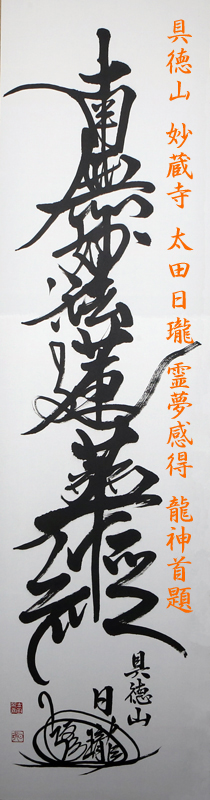 具徳山 妙蔵寺 太田日瓏 霊夢感得 龍神首題
南無妙法蓮華経
具徳山
日瓏